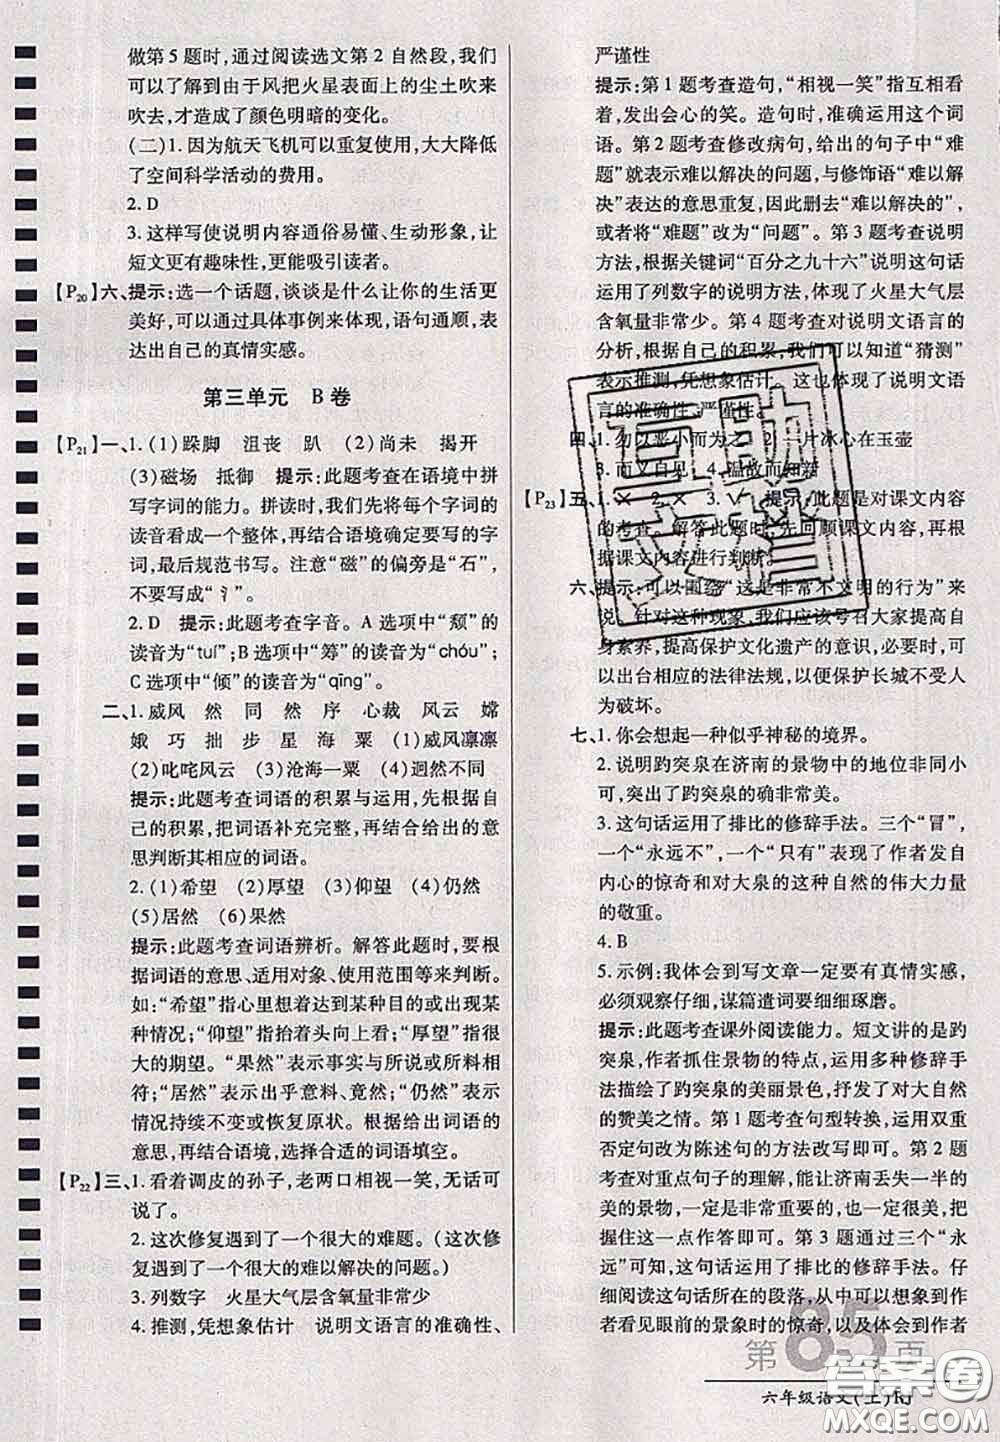 做第5题时,通过阅读选文第2自然段,我们
可以了解到由于风把火星表面上的尘土吹来
吹去,才造成了颜色明暗的变化。
(二)1.因为航天飞机可以重复使用,大大降低
了空间科学活动的费用。
2.D
3.这样写使说明内容通俗易懂、生动形象,让
短文更有趣味性,更能吸引读者。
【P20】六、提示:选一个话题,谈谈是什么让你的生活更
美好,可以通过具体事例来体现,语句通顺,表
达出自己的真情实感。
第三单元 B卷
【P21】一、1.(1)跺脚 沮丧 趴 (2)尚未 揭开
(3)磁场 抵御 提示:此题考查在语境中拼
写字词的能力。拼读时,我们先将每个字词的
读音看成一个整体,再结合语境确定要写的字
词,最后规范书写。注意“磁”的偏旁是“石”,
不要写成“氵”。
2.D 提示:此题考查字音。A选项中“颓”的
读音为“tuí”;B选项中“筹”的读音为“chóu”;
C选项中“倾”的读音为“qīng”。
二、1.威风 然 同 然 序 心裁 风云 嫦
娥 巧 拙 步 星 海 粟 (1)威风凛凛
(2)叱咤风云 (3)沧海一粟 (4)迥然不同
提示:此题考查词语的积累与运用,先根据自
己的积累,把词语补充完整,再结合给出的意
思判断其相应的词语。
2.(1)希望 (2)厚望 (3)仰望 (4)仍然
(5)居然 (6)果然
提示:此题考查词语辨析。解答此题时,要根
据词语的意思、适用对象、使用范围等来判断。
如:“希望”指心里想着达到某种目的或出现某
种情况;“仰望”指抬着头向上看;“厚望”指很
大的期望。“果然”表示事实与所说或所料相
符;“居然”表示出乎意料、竟然;“仍然”表示
情况持续不变或恢复原状。根据给出词语的
意思,再结合语境,选择合适的词语填空。
【P22】三、1.看着调皮的孙子,老两口相视一笑,无话可
说了。
2.这次修复遇到了一个很大的难题。(这次修
复遇到了一个很大的难以解决的问题。)
3.列数字 火星大气层含氧量非常少
4.推测,凭想象估计 说明文语言的准确性、
严谨性
提示:第1题考查造句,“相视一笑”指互相看
着,发出会心的笑。造句时,准确运用这个词
语。第2题考查修改病句,给出的句子中“难
题”就表示难以解决的问题,与修饰语“难以解
决”表达的意思重复,因此删去“难以解决的”,
或者将“难题”改为“问题”。第3题考查说明
方法,根据关键词“百分之九十六”说明这句话
运用了列数字的说明方法,体现了火星大气层
含氧量非常少。第4题考查对说明文语言的
分析,根据自己的积累,我们可以知道“猜测”
表示推测,凭想象估计。这也体现了说明文语
言的准确性、严谨性。
四、1.勿以恶小而为之 2.一片冰心在玉壶
3.而义自见 4.温故而知新
【P23】五、1.× 2.× 3.√ 提示:此题是对课文内容
的考查。解答此题时,先回顾课文内容,再根
据课文内容进行判断。
六、提示:可以围绕“这是非常不文明的行为”来
说。针对这种现象,我们应该号召大家提高自
身素养,提高保护文化遗产的意识,必要时,可
以出台相应的法律法规,以便保护长城不受人
为破坏。
七、1.你会想起一种似乎神秘的境界。
2.说明趵突泉在济南的景物中的地位非同小
可,突出了趵突泉的确非常美。
3.这句话运用了排比的修辞手法。三个“冒”,
一个“永远不”,一个“只有”表现了作者发自
内心的惊奇和对大泉的这种自然的伟大力量
的敬重。
4.B
5.示例:我体会到写文章一定要有真情实感,
必须观察仔细,谋篇遣词要细细琢磨。
提示:此题考查课外阅读能力。短文讲的是趵
突泉,作者抓住景物的特点,运用多种修辞手
法描绘了趵突泉的美丽景色,抒发了对大自然
的赞美之情。第1题考查句型转换,运用双重
否定句改为陈述句的方法改写即可。第2题
考查对重点句子的理解,能让济南丢失一半美
的景物,一定是非常重要的景物,是非常美的。把
握住这一点作答即可。第3题通过三个“永
远”可知,这句话运用了排比的修辞手法。仔
细阅读这句话所在的段落,从中可以想象到作
者看见眼前的景象时的惊奇,以及体会到作者
第85页
六年级语文(上)RJ
答案圈
MXQE.COM